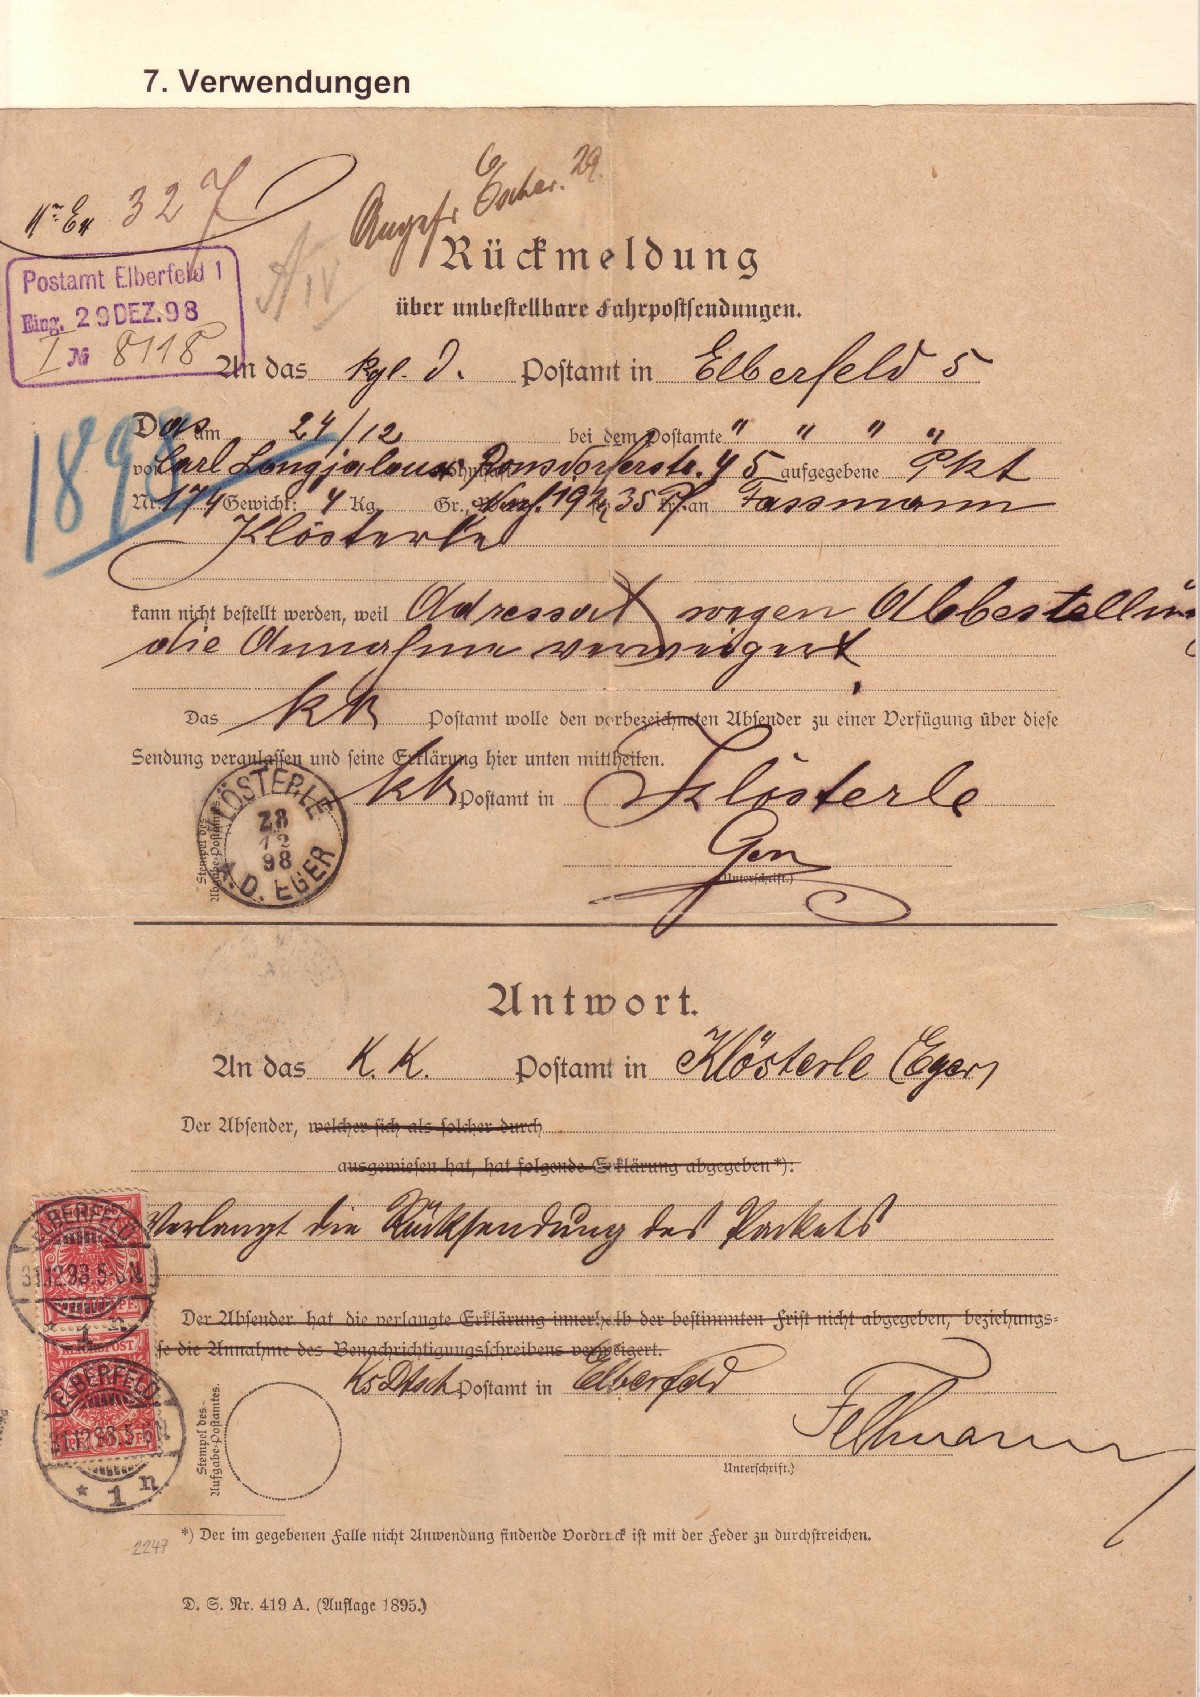 7. Verwendungen
Nr. En 327
Angefr. Escher. 29.
Postamt Elberfeld 1
Eing. 29 DEZ. 98
I № 8118
A IV
Rückmeldung
über unbestellbare Fahrpostsendungen.
An das kgl. d. Postamt in Elberfeld 5
1898
Das am 24/12 bei dem Postamte " " " "
von Carl Ronsdorferstr. 45 aufgegebene Pkt
Nr. 174 Gewicht: 4 Kg. Gr., 35 an Fassmann
Klösterle
kann nicht bestellt werden, weil Adressat wegen Abbestellun
die Annahme verweigert
Das kk Postamt wolle den vorbezeichneten Absender zu einer Verfügung über diese
Sendung veranlassen und seine Erklärung hier unten mittheilen.
kk Postamt in Klösterle
Stempel des
Abgabe-Postamtes
KLÖSTERLE
28
12
98
A.D. EGER
(Unterschrift.)
Antwort.
An das K. K. Postamt in Klösterle (Eger)
Der Absender, welcher sich als solcher durch
ausgewiesen hat, hat folgende Erklärung abgegeben*):
Verlangt die Rücksendung des Packets
Der Absender hat die verlangte Erklärung innerhalb der bestimmten Frist nicht abgegeben, beziehungs-
se die Annahme des Benachrichtigungsschreibens verweigert.
Ks Dtsch Postamt in Elberfeld
ELBERFELD
31.12.98. 5-6N
* 1 n
REICHSPOST
ELBERFELD
31.12.98. 5-6N
* 1 n
Stempel des
Aufgabe-Postamtes.
Fellmann
(Unterschrift.)
*) Der im gegebenen Falle nicht Anwendung findende Vordruck ist mit der Feder zu durchstreichen.
2247
D. S. Nr. 419 A. (Auflage 1895.)